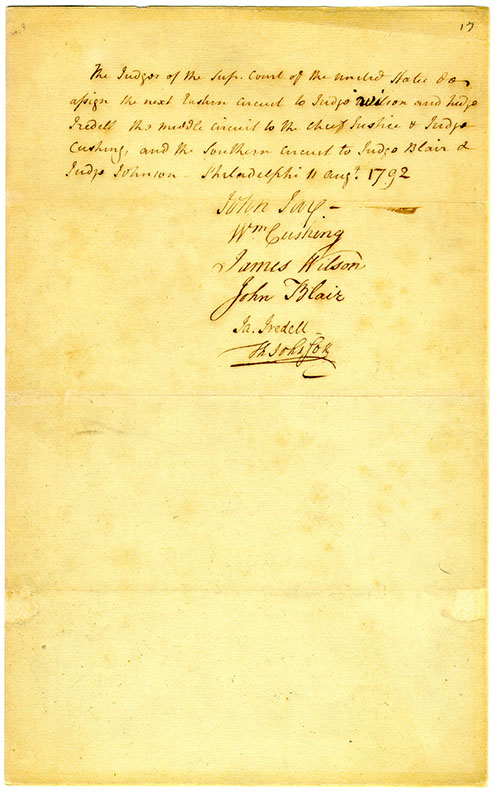 17
The Judges of the Sup. Court of the united States do
assign the next Eastern circuit to Judge Wilson and Judge
Iredell the middle circuit to the chief Justice & Judge
Cushing, and the Southern circuit to Judge Blair &
Judge Johnson – Philadelphi 11 augt. 1792
John Jay –
Wm Cushing
James Wilson
John Blair
Ja. Iredell –
Th Johnson